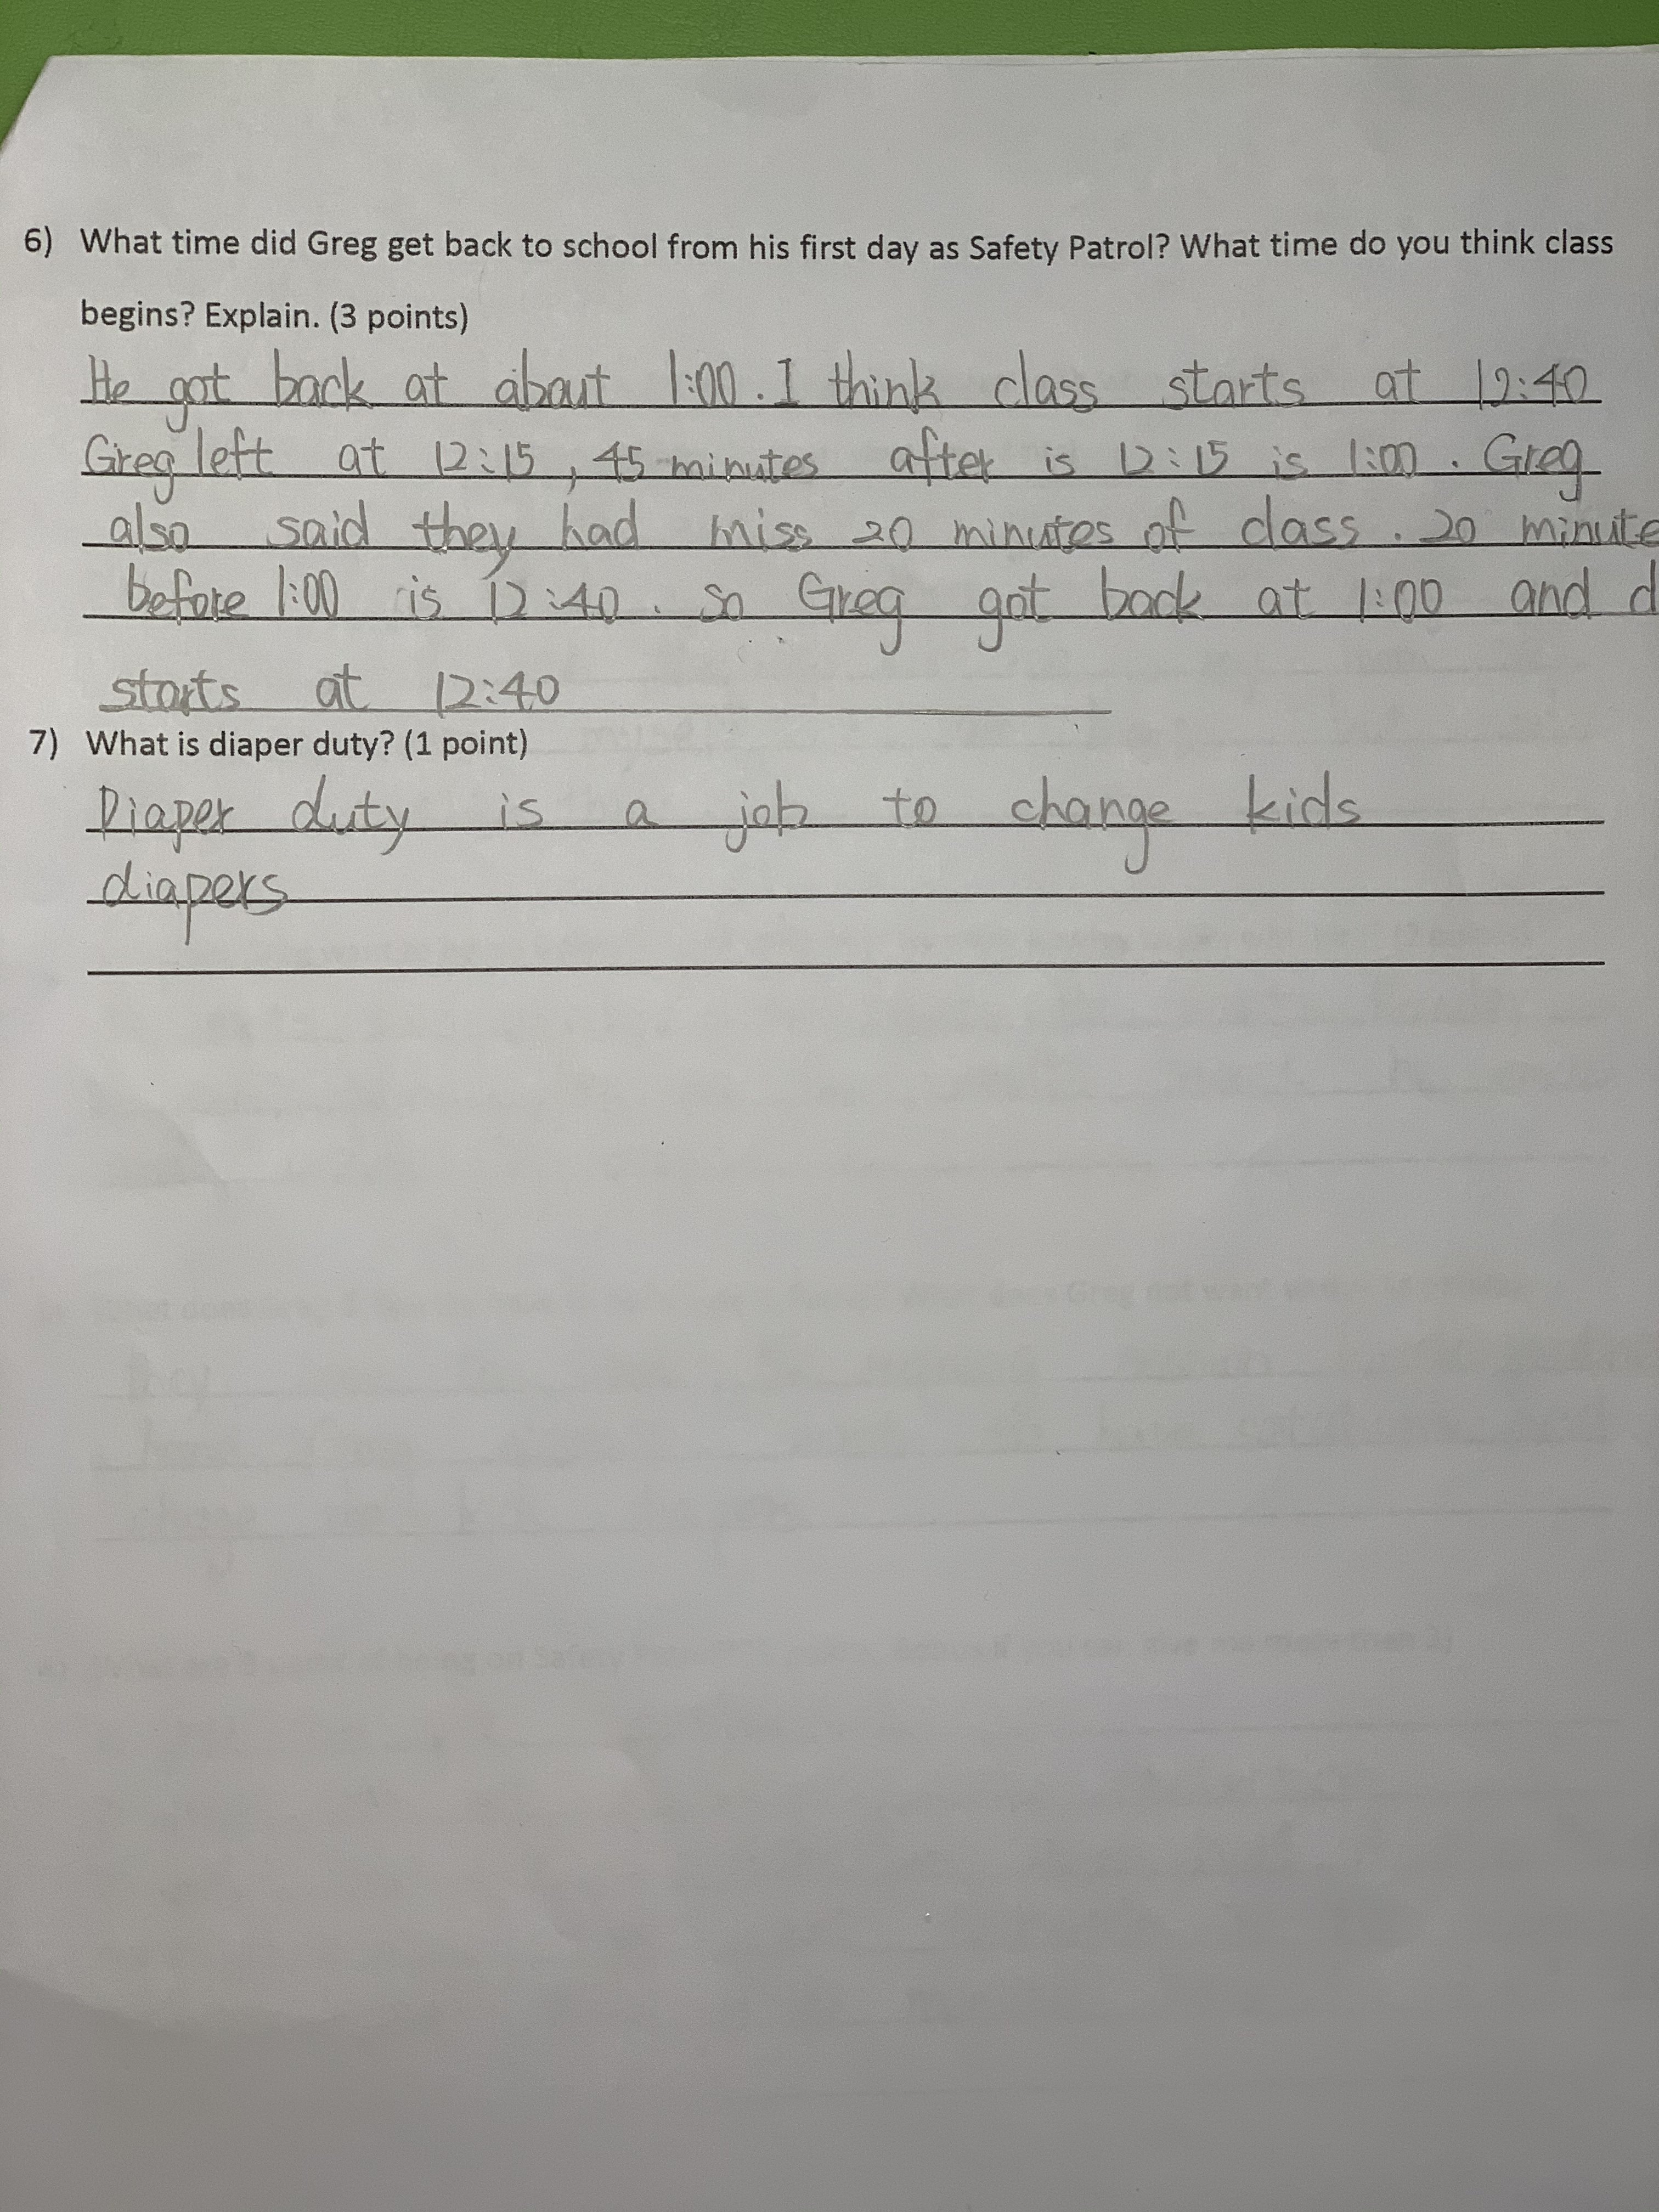 6) What time did Greg get back to school from his first day as Safety Patrol? What time do you think class
begins? Explain. (3 points)
He got back at about 1:00. I think class starts at 12:40
Greg left at 12:15, 45 minutes after is 12:15 is 1:00. Greg
also said they had miss 20 minutes of class. 20 minute
before 1:00 is 12:40. so Greg got back at 1:00 and
starts at 12:40
7) What is diaper duty? (1 point)
Diaper duty is a job to change kids
diapers